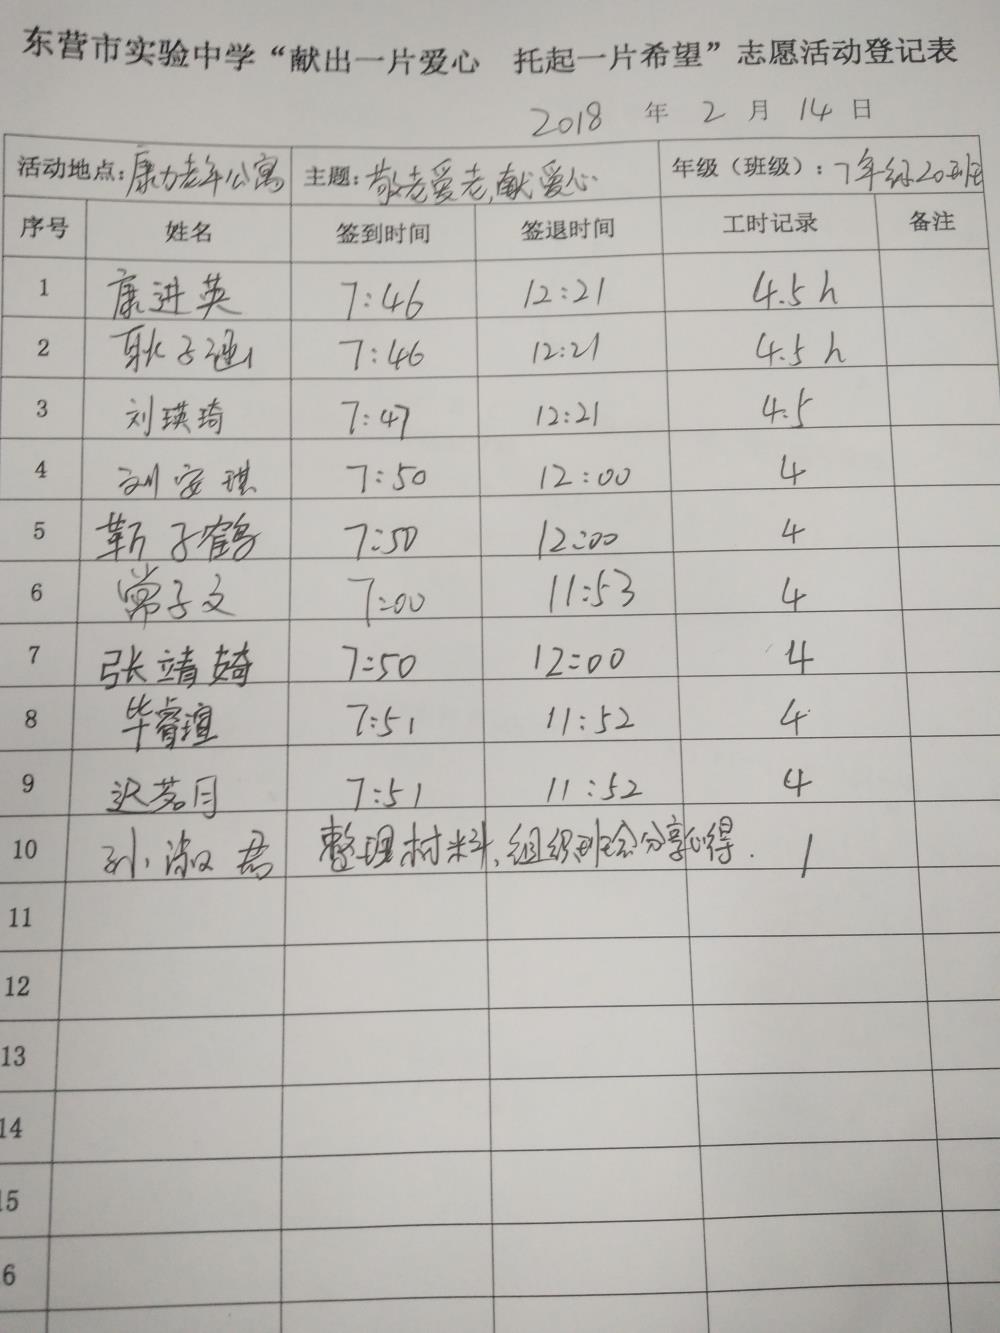 东营市实验中学“献出一片爱心 托起一片希望”志愿活动登记表
2018 年 2 月 14 日
活动地点:康力老年公寓 主题:敬老爱老,献爱心 年级（班级）:7年级20班
序号 姓名 签到时间 签退时间 工时记录 备注
1 康进英 7:46 12:21 4.5h
2 耿子涵 7:46 12:21 4.5h
3 刘瑛琦 7:47 12:21 4.5
4 刘安琪 7:50 12:00 4
5 靳子鹤 7:50 12:00 4
6 常子文 7:00 11:53 4
7 张靖婍 7:50 12:00 4
8 毕睿瑄 7:51 11:52 4
9 迟茗月 7:51 11:52 4
10 孙淑君 整理材料,组织班会分享心得. 1
11
12
13
14
15
6